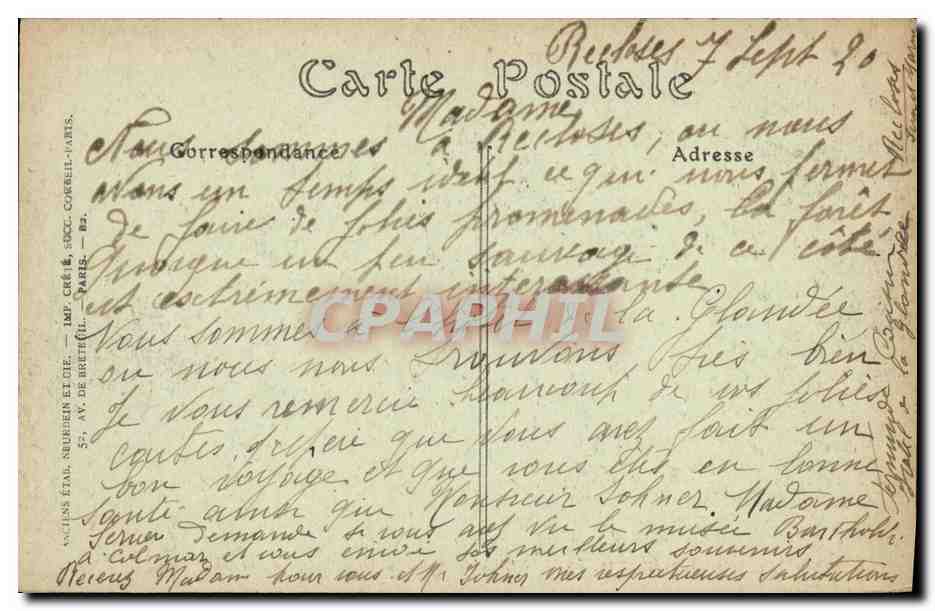 Recloses 7 Sept 20
Carte Postale
Madame
Correspondance
Adresse
Nous sommes à Recloses, ou nous
avons un temps idéal ce qui nous permet
de faire de jolies promenades, la forêt
quoique un peu sauvage de ce côté
est extrêmement intéressante
Nous sommes à l'hotel de la Glandée
ou nous nous trouvons très bien
Je vous remercie beaucoup de vos jolies
cartes j'espère que vous avez fait un
bon voyage et que vous êtes en bonne
santé ainsi que Monsieur Johner Madame
demande si vous avez vu le musée Bartholdi
à Colmar et vous envoie ses meilleurs souvenirs
Recevez Madame pour vous et Mr Johner mes respectueuses salutations
Hotel de la Glandée Recloses
Seine et Marne
ANCIENS ÉTAB. NEURDEIN ET CIE. — IMP. CRÉTÉ, SUCC. CORBEIL-PARIS.
52, AV. DE BRETEUIL. — PARIS. —
CPAPHIL